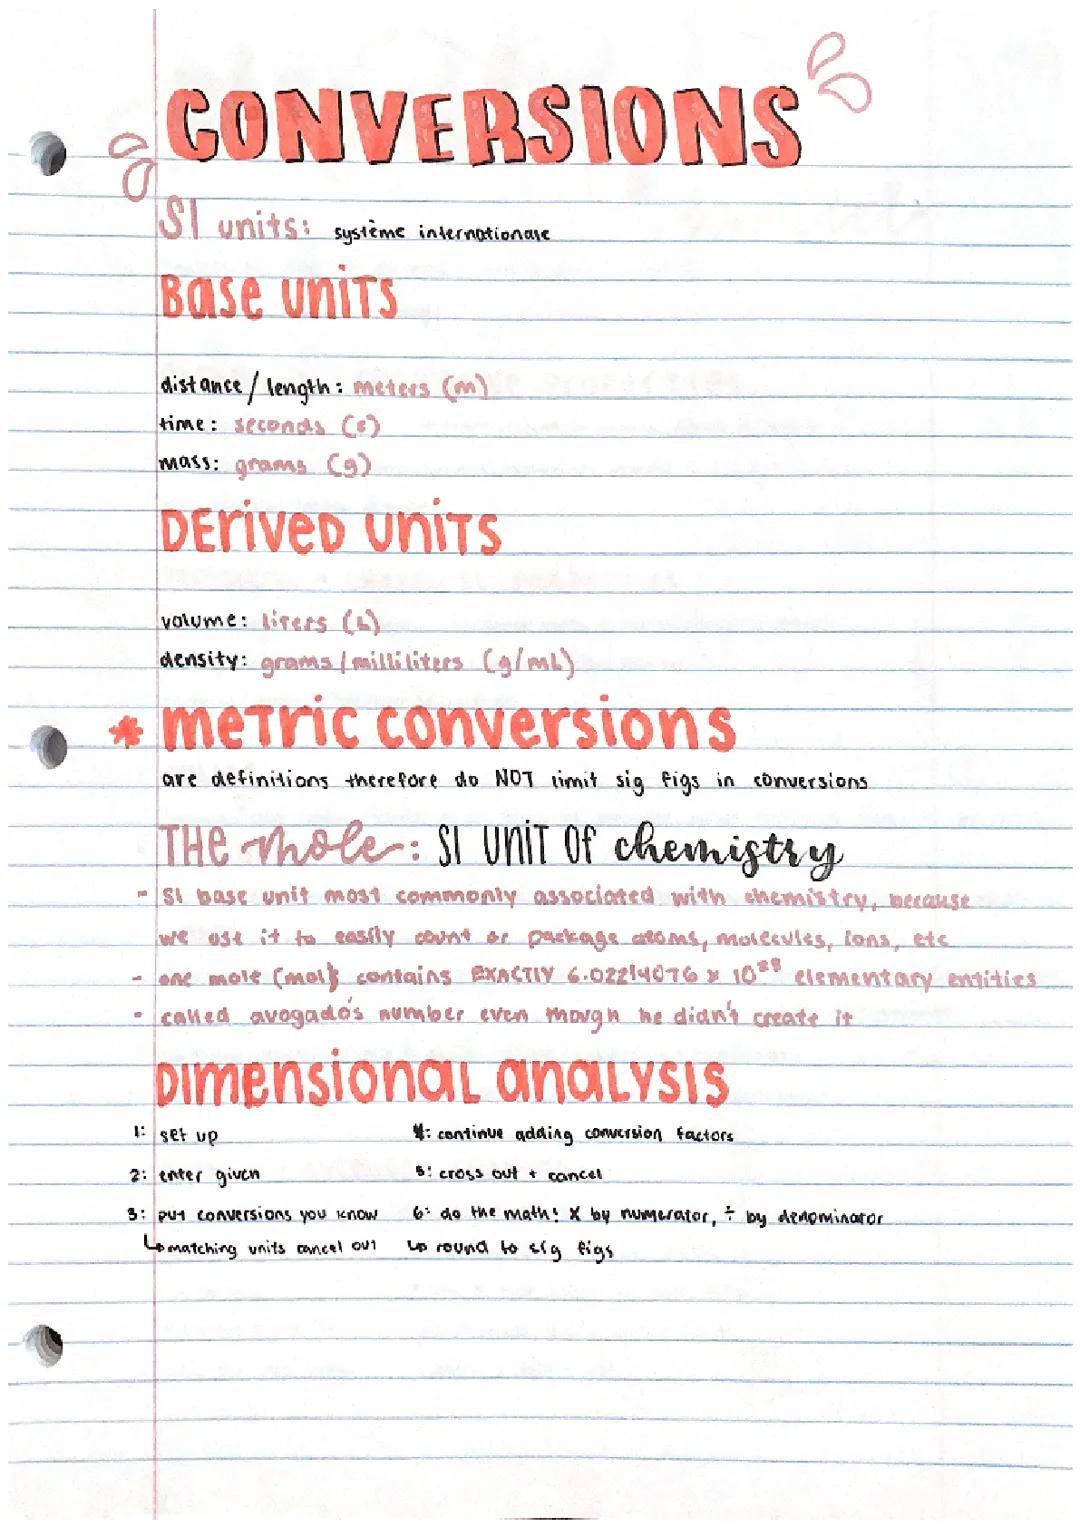 CONVERSIONS
SI units: système internationale
Base units
distance / length: meters (m)
time: seconds (s)
mass: grams (g)
Derived units
volume: liters (L)
density: grams / milliliters (g/mL)
* metric conversions
are definitions therefore do NOT limit sig figs in conversions
THE mole: SI UNIT OF chemistry
- SI base unit most commonly associated with chemistry, because
we use it to easily count or package atoms, molecules, ions, etc
- one mole (mol) contains EXACTLY 6.02214076 x 10²³ elementary entities
- called avogado's number even though he didn't create it
DIMENSIONAL ANALYSIS
1: set up 4: continue adding conversion factors
2: enter given 5: cross out + cancel
3: put conversions you know 6: do the math! x by numerator, ÷ by denominator
↳ matching units cancel out ↳ round to sig figs